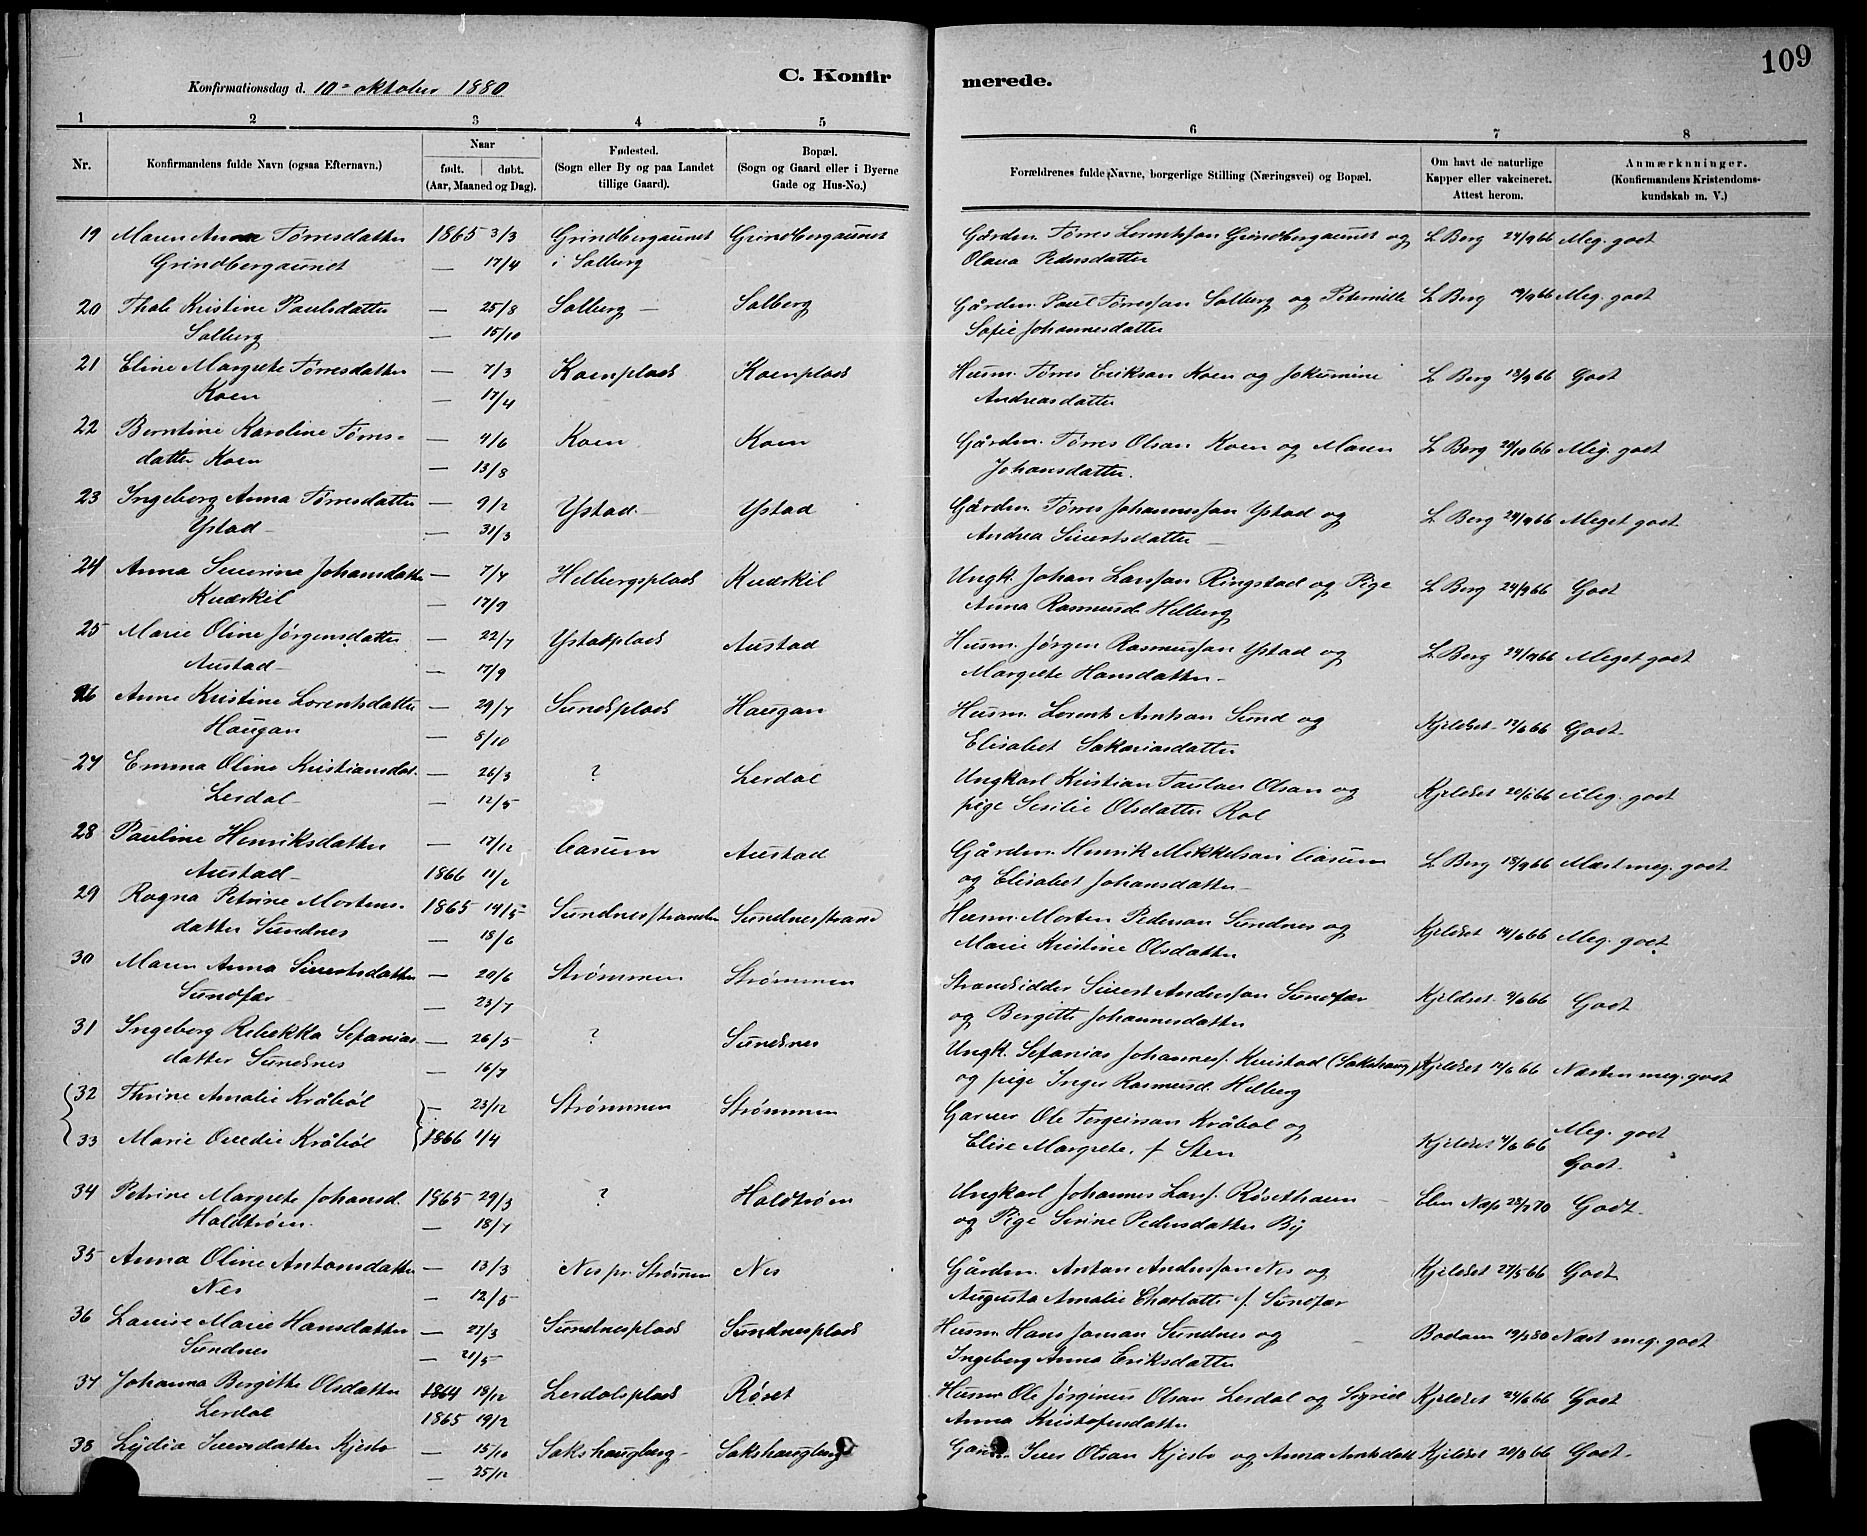 109
C. Konfirmerede.
Konfirmationsdag d. 10de oktober 1880
1 2 3 4 5 6 7 8
Nr.
Konfirmandens fulde Navn (ogsaa Efternavn.)
Naar
født. døbt.
(Aar, Maaned og Dag).
Fødested.
(Sogn eller By og paa Landet
tillige Gaard).
Bopæl.
(Sogn og Gaard eller i Byerne
Gade og Hus-No.)
Forældrenes fulde Navne, borgerlige Stilling (Næringsvei) og Bopæl.
Om havt de naturlige
Kapper eller vakcineret.
Attest herom.
Anmærkninger.
(Konfirmandens Kristendoms-
kundskab m. V.)
19 Maren Anna Tørresdatter 1865 3/3 Grindbergaunet Grindbergaunet Gårdm. Tørres Lorentssen Grindbergaunet og L Berg 24/9 66 Meg. godt
Grindbergaunet — 17/4 i Salberg Olava Pedersdatter
20 Thale Kristine Paulsdatter — 25/8 Salberg — Salberg Gårdm. Paul Tørressen Salberg og Peternille L Berg 19/9 66 Meg. godt
Salberg — 15/10 Sofie Johannesdatter
21 Eline Margrete Tørresdatter — 7/3 Koenplads Koenplads Husm. Tørres Eriksen Koen og Jokumine L Berg 18/9 66 Godt
Koen — 17/4 Andreasdatter
22 Berntine Karoline Tørres- — 4/6 Koen Koen Gårdm. Tørres Olsen Koen og Maren L Berg 20/10 66 Meg. godt
datter Koen — 13/8 Johansdatter.
23 Ingeborg Anna Tørresdatter — 9/2 Ystad — Ystad Gårdm. Tørres Johannessen Ystad og L Berg 24/9 66 Meget godt
Ystad — — 31/3 Andrea Sivertsdatter —
24 Anna Severina Johansdatter — 7/7 Helbergsplads Kverkil Ungk. Johan Larssen Ringstad og Pige L Berg 24/9 66 Godt
Kverkil — 17/9 Anna Rasmusd. Helberg
25 Marie Oline Jørgensdatter — 22/7 Ystadplads Austad Husm. Jørgen Rasmussen Ystad og L Berg 24/9 66 Meget godt
Austad — — 17/9 Margrete Hansdatter —
26 Anne Kristine Lorentsdatter — 29/7 Sundsplads Haugan Husm. Lorents Arntsen Sund og Kjeldset 12/6 66 Godt
Haugan — 8/10 Elisabet Sakariasdatter
27 Emma Oline Kristiansdat. — 26/3 ? Lerdal Ungkarl Kristian Paulner Olsen og Kjeldset 20/6 66 Meg. godt
Lerdal — — 12/5 pige Sesilie Olsdatter Rol
28 Pauline Henriksdatter — 17/12 Aasum Austad Gårdm. Henrik Mikkelsen Aasum L Berg 18/9 66 Næst meg. godt
Austad — 1866 11/2 og Elisabet Johansdatter —
29 Ragna Petrine Mortens- 1865 14/5 Sundnesstranden Sundnesstrand Husm. Morten Pedersen Sundnes og Kjeldset 14/6 66 Meg. godt
datter Sundnes — 18/6 Marie Kristine Olsdatter
30 Maren Anna Sivertsdatter — 20/6 Strømmen Strømmen Strandsidder Sivert Anderssen Sundfær Kjeldset 9/6 66 Godt
Sundfær — 23/7 og Bergitte Johannesdatter
31 Ingeborg Rebekka Sefanias — 26/5 ? Sundsnes Ungk. Sefanias Johanness. Kvistad (Sakshaug) Kjeldset 14/6 66 Næsten meg. godt
datter Sundsnes — 16/7 og pige Inger Rasmusd. Helberg
32 Thrine Amalie Kråbøl — 23/12 Strømmen Strømmen Garver Ole Torgeirsen Kråbøl og Meg. godt
33 Marie Ovedie Kråbøl 1866 1/4 Elise Margrete, f. Sten Kjeldset 4/6 66 Godt.
34 Petrine Margrete Johansd. 1865 29/3 ? Haldtrøen Ungkarl Johannes Larss. Røsethauen Eben Næss 28/7 70 Godt.
Haldtrøen — 18/7 og Pige Serine Pedersdatter By
35 Anna Oline Antonsdatter — 13/3 Nes pr. Strømmen Nes Gårdm. Anton Anderssen Nes og Kjeldset 27/5 66 Godt
Nes — 12/5 Augusta Amalie Charlotte f. Sundfær
36 Lavise Marie Hansdatter — 27/3 Sundnesplads Sundnesplads Husm. Hans Jonsen Sundnes og Bodom 19/7 80 Næst meg. godt
Sundnes — 21/5 Ingeborg Anna Eriksdatter
37 Johanna Bergitte Olsdatter 1864 18/12 Lerdalsplads Røset Husm. Ole Jørginus Olsen Lerdal og Sigrid Kjeldset 24/6 66 Godt
Lerdal 1865 19/2 Anna Kristofersdatter
38 Lydia Iversdatter Kjesbo — 15/10 Sakshaugberg — Sakshaugberg Iver Olsen Kjesbo og Anna Arntsdatt Kjeldset 20/8 66 Godt —
— 25/12